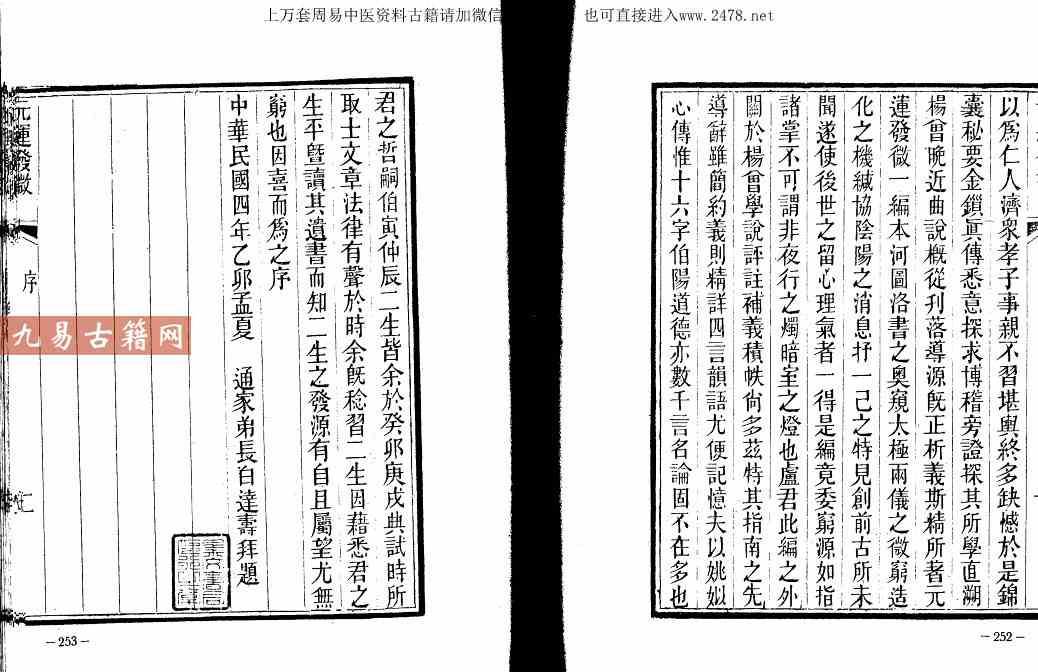 上万套周易中医资料古籍请加微信
也可直接进入www.2478.net
以為仁人濟衆孝子事親不習堪輿終多缺憾於是錦
囊秘要金鎖眞傳悉意探求博稽旁證探其所學直溯
楊曾晚近曲說概從刋落導源旣正析義斯精所著元
運發微一編本河圖洛書之奧窺太極兩儀之微窮造
化之機緘協陰陽之消息抒一己之特見創前古所未
聞遂使後世之留心理氣者一得是編竟委窮源如指
諸掌不可謂非夜行之燭暗室之燈也盧君此編之外
關於楊曾學說評註補義積帙尙多茲特其指南之先
導辭雖簡約義則精詳四言韻語尤便記憶夫以姚姒
心傳惟十六字伯陽道德亦數千言名論固不在多也
−252−
君之哲嗣伯寅仲辰二生皆余於癸卯庚戌典試時所
取士文章法律有聲於時余旣稔習二生因藉悉君之
生平曁讀其遺書而知二生之發源有自且屬望尤無
窮也因喜而爲之序
中華民國四年乙卯孟夏 通家弟長白達壽拜題
元運發微
序
九易古籍网
−253−